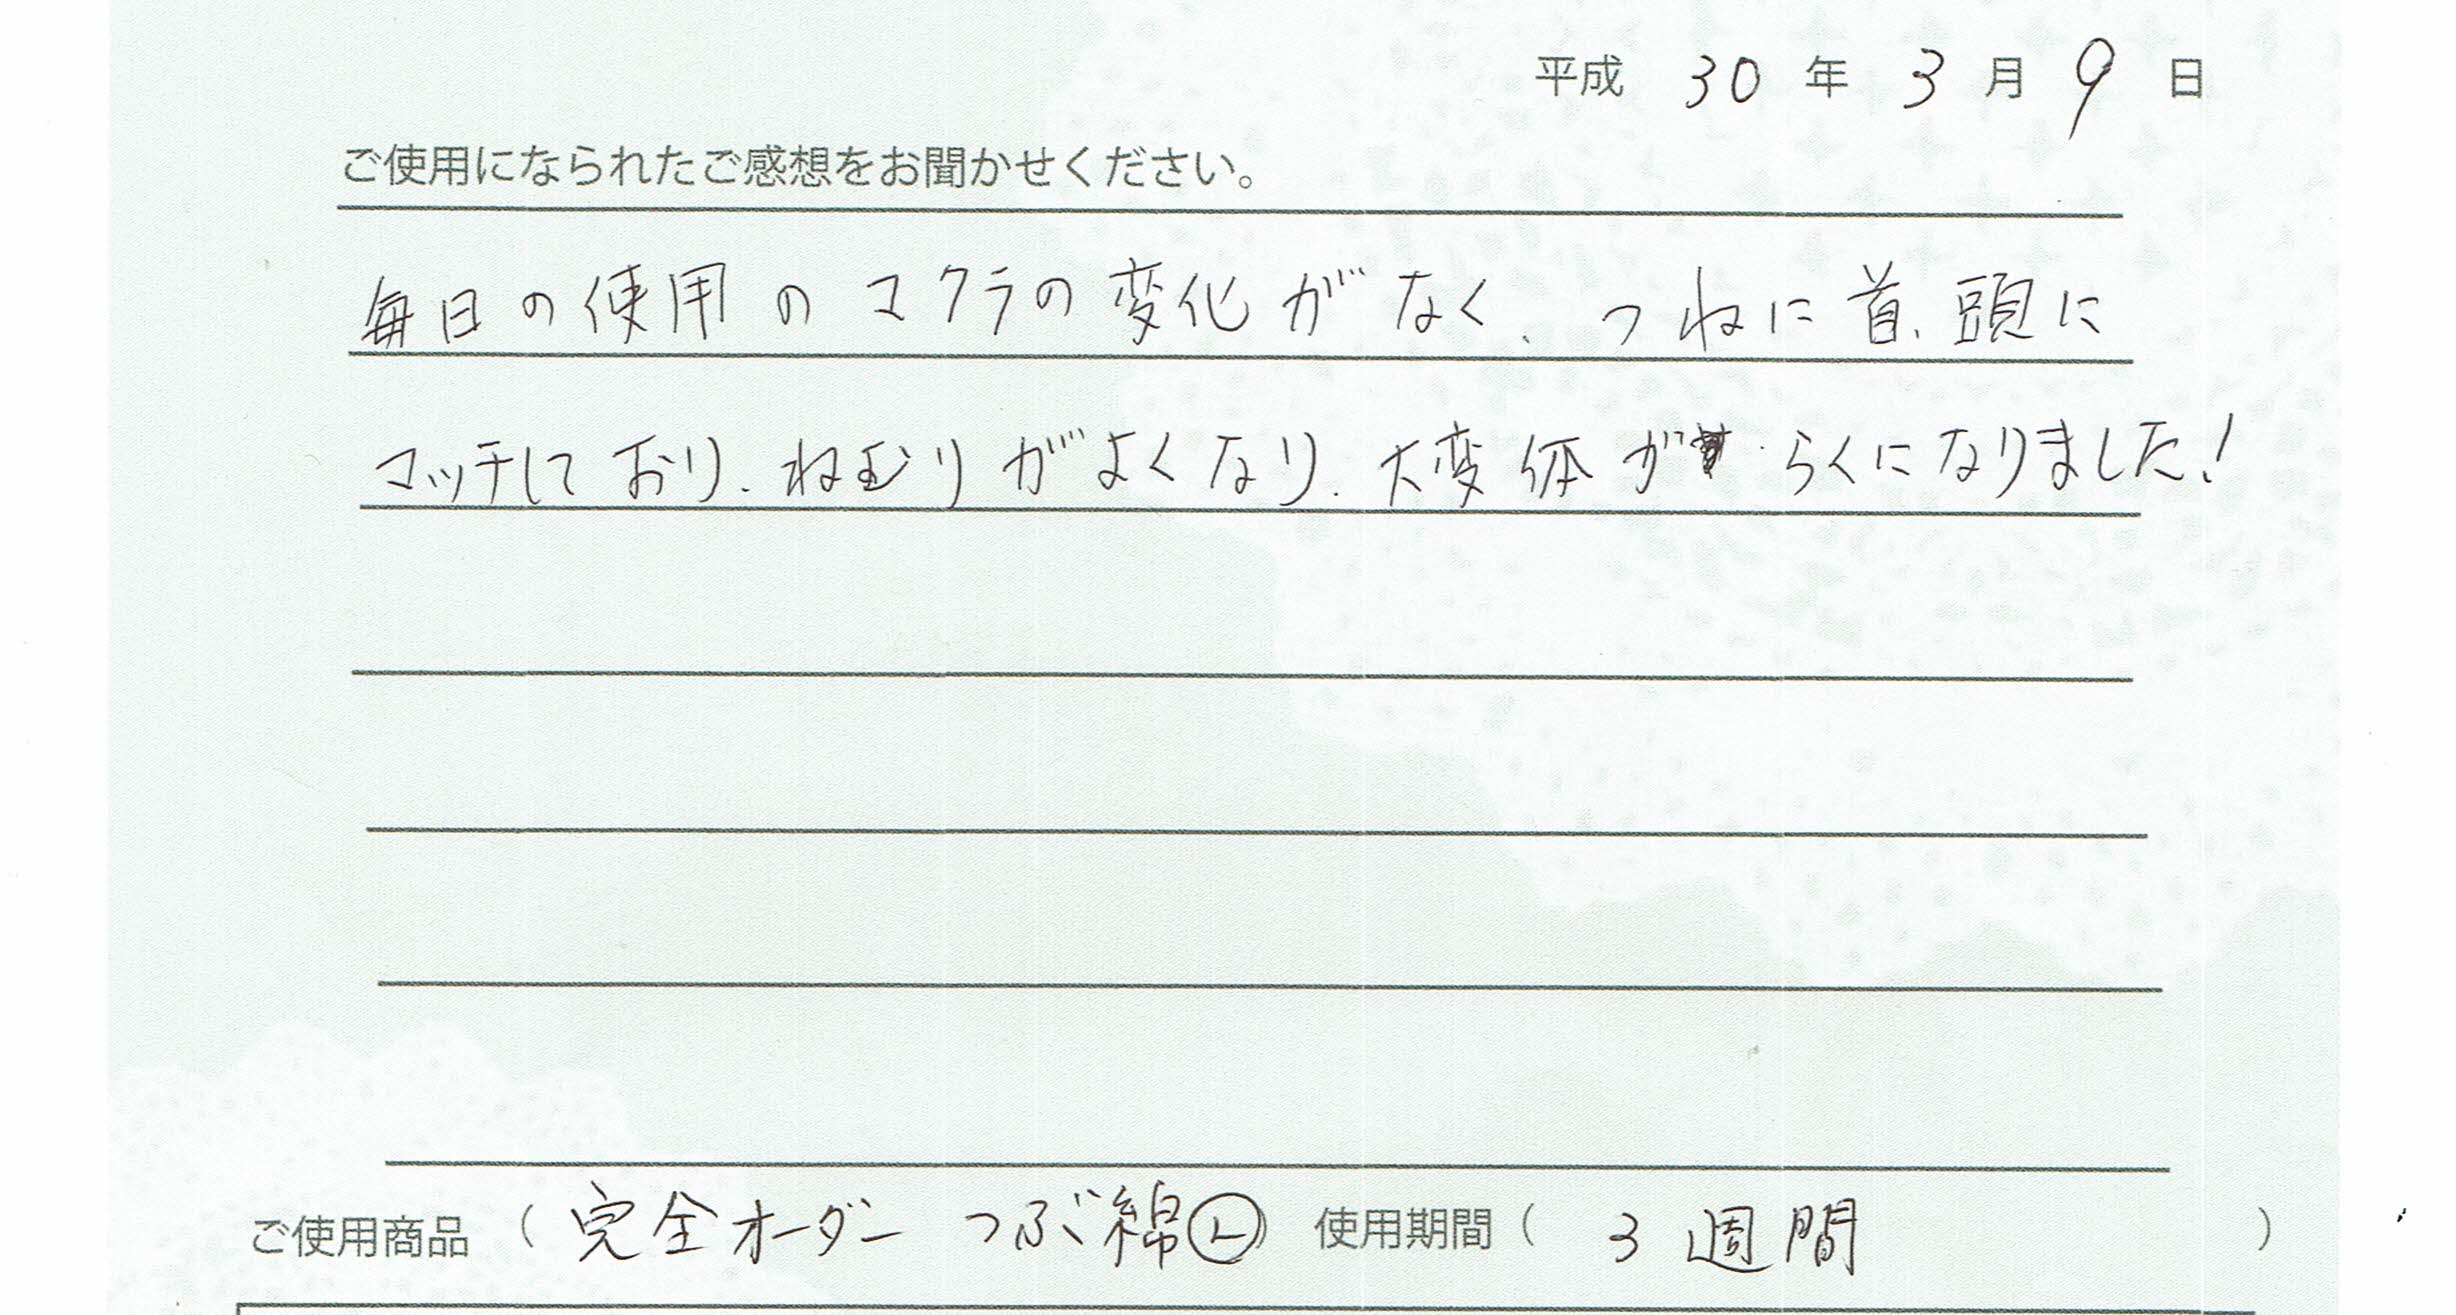 平成 30 年 3 月 9 日
ご使用になられたご感想をお聞かせください。
毎日の使用のマクラの変化がなく、つねに首、頭に
マッチしており、ねむりがよくなり、大変体がらくになりました!
ご使用商品 ( 完全オーダー つぶ綿Ⓛ ) 使用期間 ( 3週間 )